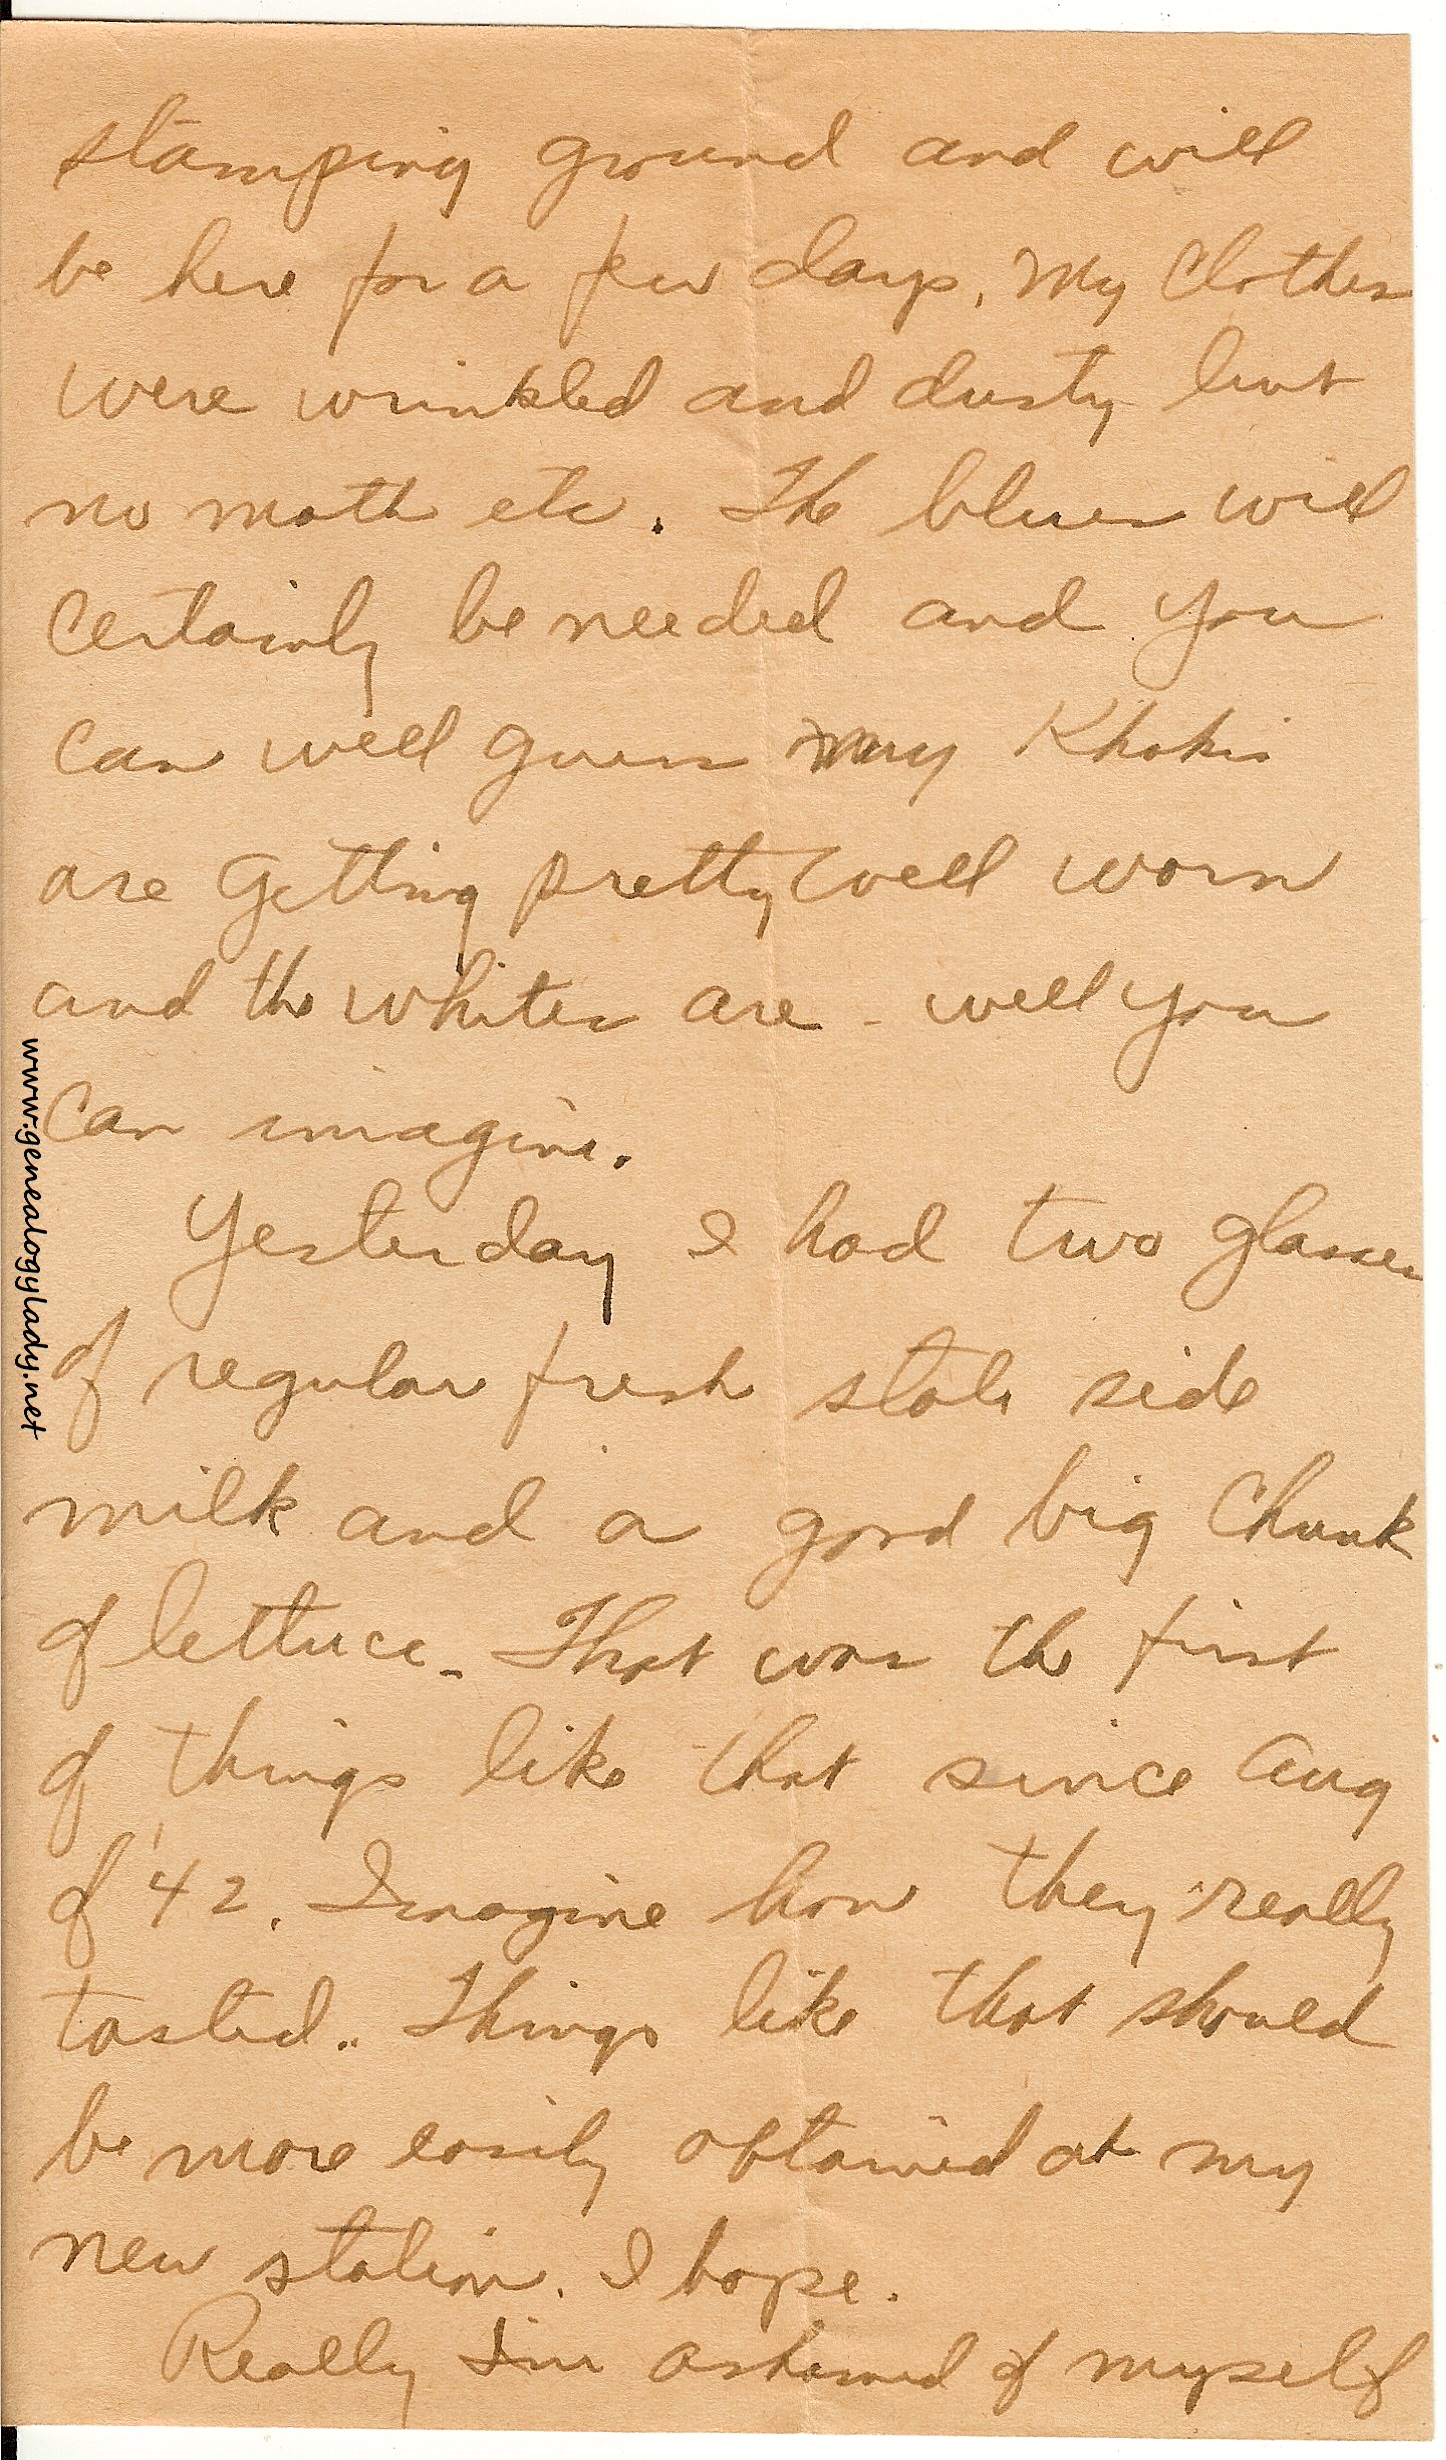 stamping ground and will
be here for a few days. My clothes
were wrinkled and dusty but
no moth etc. The blues will
certainly be needed and you
can well guess my Khakis
are getting pretty well worn
and the whites are - well you
can imagine.
Yesterday I had two glasses
of regular fresh state side
milk and a good big chunk
of lettuce. That was the first
of things like that since Aug
of '42. Imagine how they really
tasted.. Things like that should
be more easily obtained at my
new station. I hope.
Really I'm ashamed of myself
www.genealogylady.net